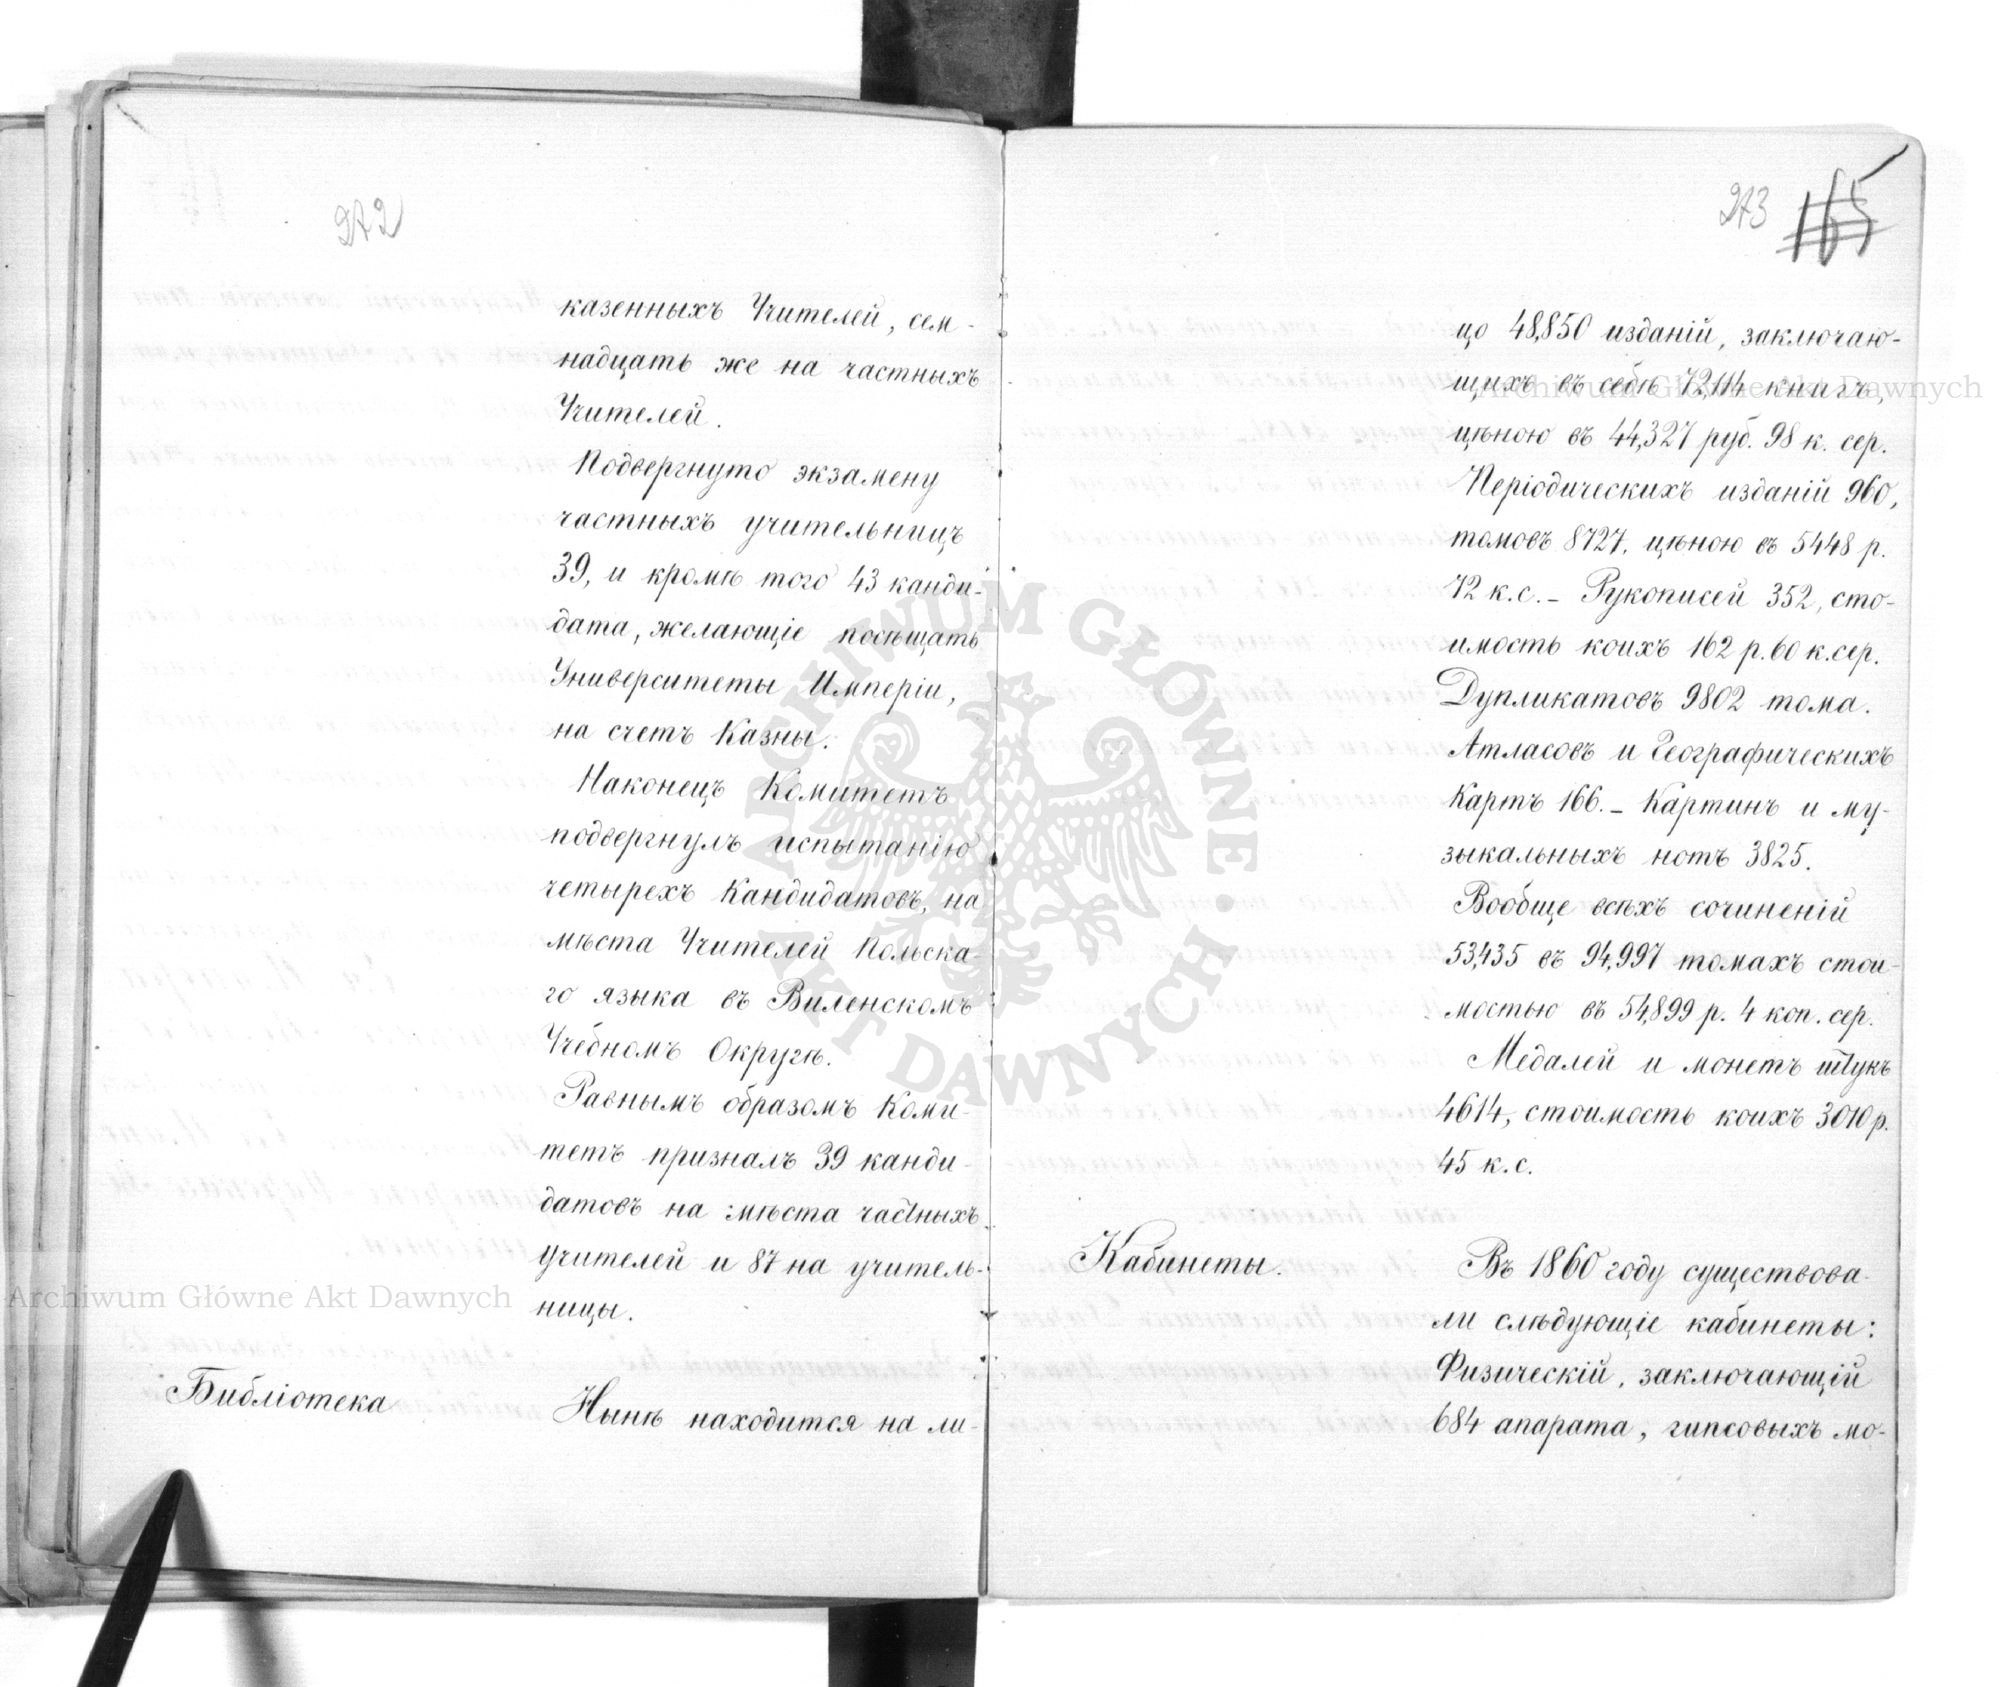 272
казенныхъ Учителей, сем-
надцать же на частныхъ
Учителей.
Подвергнуто экзамену
частныхъ учительницъ
39, и кромѣ того 43 канди-
дата, желающіе посѣщать
Университеты Имперіи,
на счетъ Казны.
Наконецъ Комитетъ
подвергнулъ испытанію
четырехъ Кандидатовъ, на
мѣста Учителей Польска-
го языка въ Виленскомъ
Учебномъ Округѣ.
Равнымъ образомъ Коми-
тетъ призналъ 39 канди-
датовъ на мѣста частныхъ
учителей и 87 на учитель-
ницы.
Библіотека
Нынѣ находится на ли-
273 165
цо 48,850 изданій, заключаю-
щихъ въ себѣ 72,114 книгъ,
цѣною въ 44,327 руб. 98 к. сер.
Періодическихъ изданій 960,
томовъ 8727, цѣною въ 5448 р.
72 к. с. – Рукописей 352, сто-
имость коихъ 162 р. 60 к. сер.
Дупликатовъ 9802 тома.
Атласовъ и Географическихъ
Картъ 166. – Картинъ и му-
зыкальныхъ нотъ 3825.
Вообще всѣхъ сочиненій
53,435 въ 94,997 томахъ стои-
мостью въ 54,899 р. 4 коп. сер.
Медалей и монетъ штукъ
4614, стоимость коихъ 3010 р.
45 к. с.
Кабинеты.
Въ 1860 году существова-
ли слѣдующіе кабинеты:
Физическій, заключающій
684 апарата, гипсовыхъ мо-
Archiwum Główne Akt Dawnych
Archiwum Główne Akt Dawnych
ARCHIWUM GŁÓWNE AKT DAWNYCH